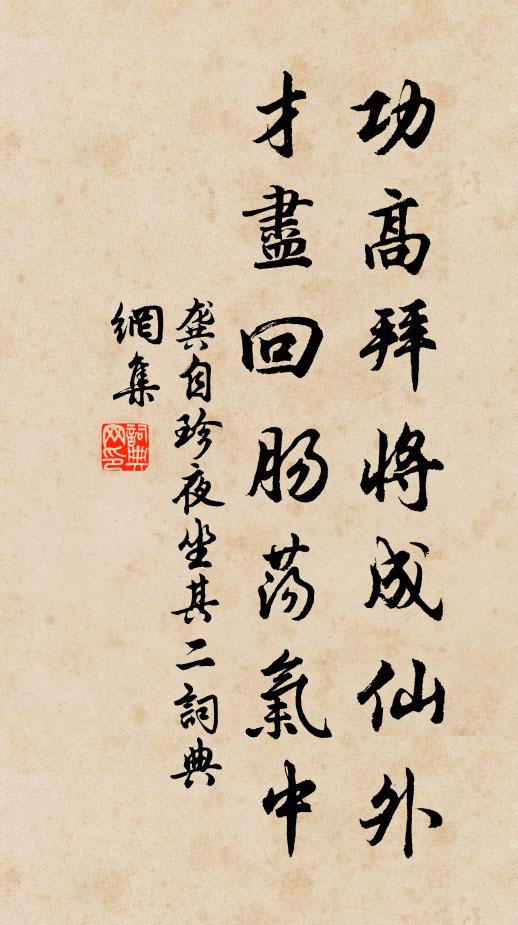 功高拜將成仙外
才盡回肠荡氣中
龚自珍夜坐其二詞典
網集
詞典
网印